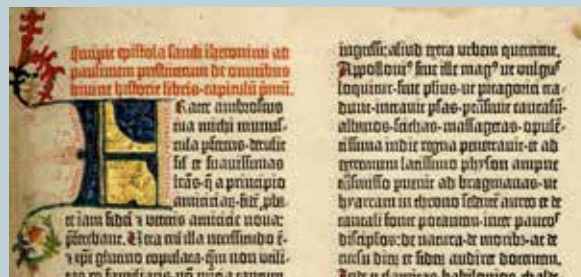 Incipit epistola sancti iheronimi ad
paulinum presbiterum de omnibus
diuine historie libris·capitulū pmū.
Frater ambrosius
tua michi munus-
cula pferens·detulit
sil et suauissimas
lras·q̄ a principio
amiciciaꝝ·fidē pba-
te iam fidei ⁊ veteris amicicie noua:
pferebant. Uera em illa necessitudo ē·
⁊ xpi glutino copulata·qm non vtili-
tas rei familiaris·nō pntia tantum
ingressi:aliud extra urbem quererent.
Appolloniꝰ siue ille magꝰ ut vulgus
loquitur·siue phus·ut pitagorici tra-
dunt·intrauit psas·ptrāsiuit caucasū·
albanos·scithas·massagetas·opulē-
tissima indie regna penetrauit·et ad
extremum latissimo physon ampne
trāsmisso puenit ad bragmanas·ut
hyarcam in throno sedentē aureo et de
tantali fonte potantem·inter paucos
disciplos·de natura·de moribꝰ·ac de
cursu dieꝝ et siderū audiret docentem.
Inde p elamitas·babilonios·chalde-